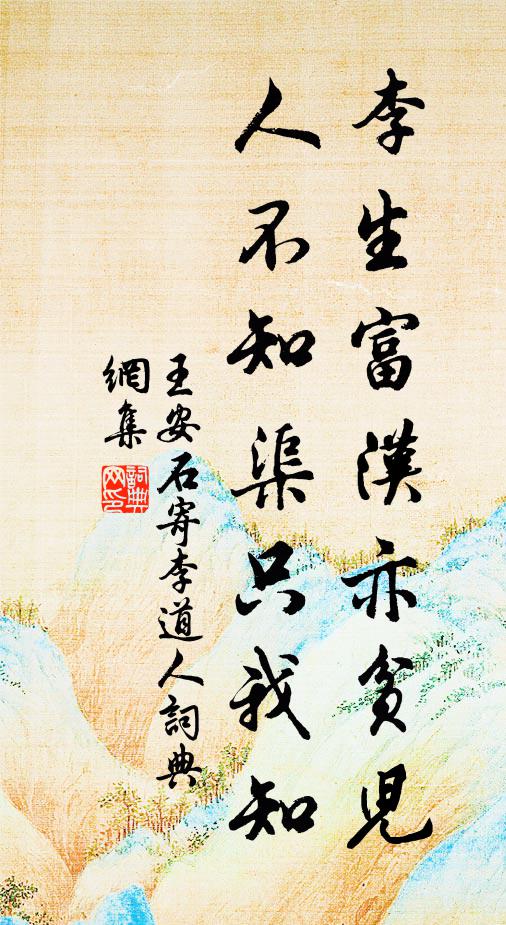 李生富漢亦貧兒
人不知渠只我知
王安石寄李道人詞典
網集
詞典
网印